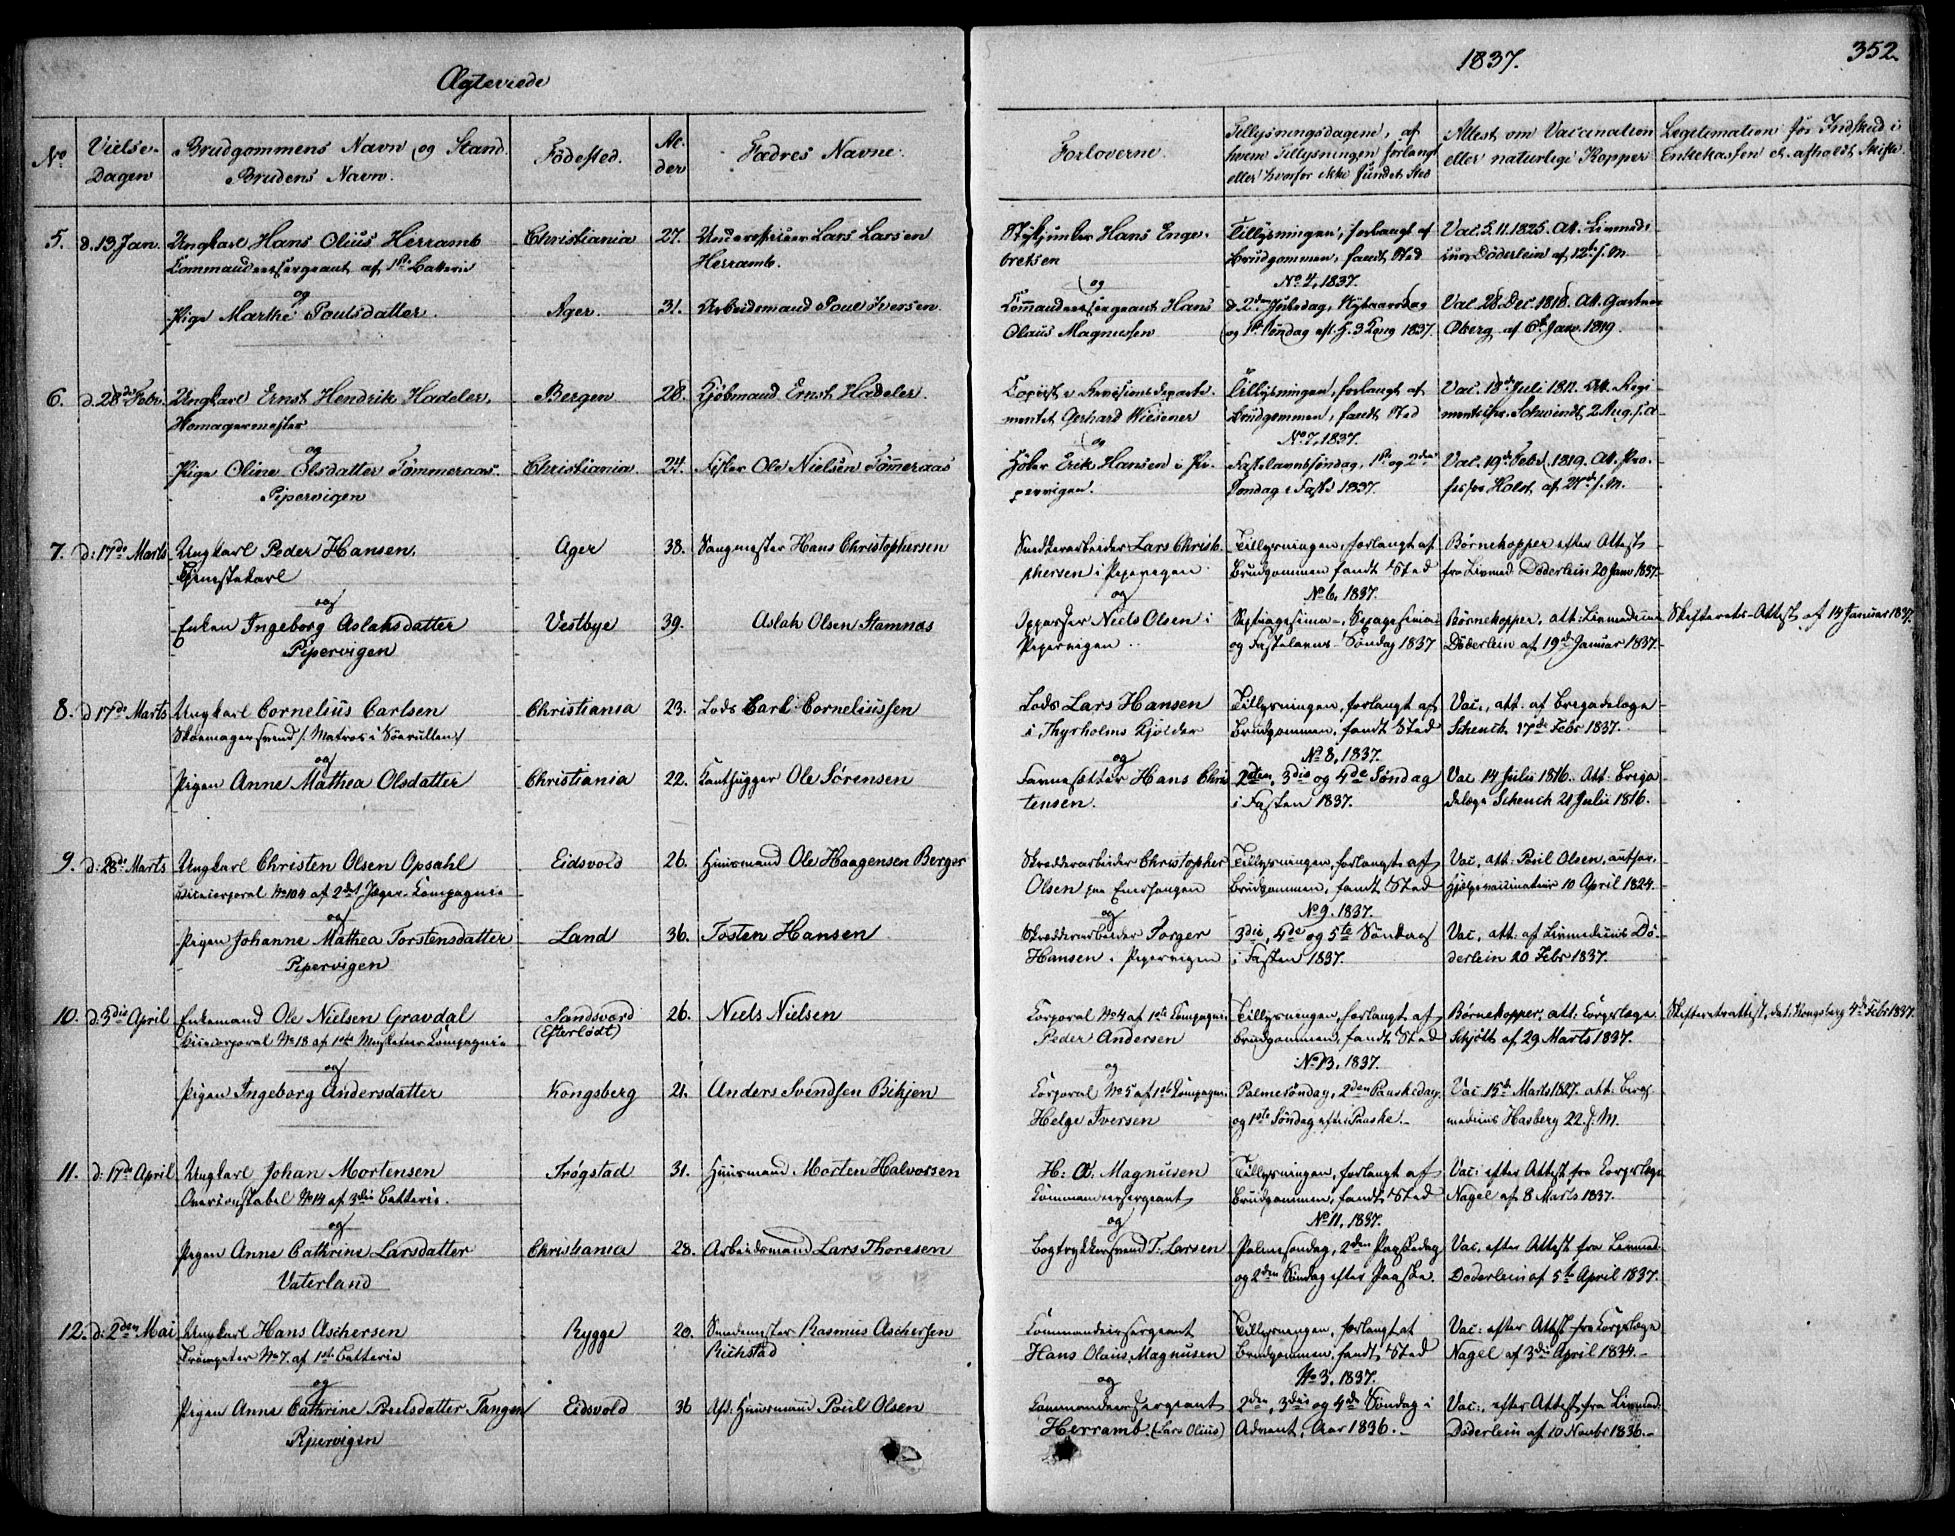 Ægteviede
1837.
352.
No
Vielse-
Dagen
Brudgommens Navn og Stand.
Brudens Navn.
Fødested.
Al-
der
Fædres Navne.
Forloverne.
Tillysningsdagene, af
hvem Tillysningen forlangt
eller hvorfor ikke fundet Sted
Attest om Vaccination
eller naturlige Kopper
Legitimation for Indskud i
Enkekassen et. afholdt Skifte.
5. d. 13 Jan. Ungkarl Hans Olius Herramb Christiania 27. Underofficer Lars Larsen
Commandeersergeant af 1ste Batteri Herramb.
og
Pige Marthe Poulsdatter. Ager. 31. Arbeidsmand Poul Iversen.
Stykjunker Hans Enge-
bretsen
og
Commandeersergeant Hans
Olaus Magnussen
Tillysningen, forlangt af
Brudgommen, fandt Sted
No 4, 1837.
d. 2den Juledag, Nytaarsdag
og 1ste Søndag eft. H. 3 Kong 1837.
Vac. 5.11.1825. Att. Livmedi-
cus Döderlein af 12te s. M.
Vac. 28. Dec. 1818. Att. Gartner
Oberg af 6te Janv. 1819.
6. d. 28de Febr. Ungkarl Ernst Hendrik Hadeler, Bergen 28. Kjøbmand Ernst Hadeler.
Hornagermester
og
Pige Oline Olsdatter Tømmeraas. Christiania. 24. Fisker Ole Nielsen Tømmeraas
Pipervigen
Copist i Revisionsdeparte-
mentet Gerhard Wiesener
og
Høker Erik Hansen i Pi-
pervigen.
Tillysningen, forlangt af
Brudgommen, fandt Sted
No 7, 1837.
Fastelavnssøndag, 1ste og 2den
Søndag i Faste 1837.
Vac. 18de Juli 1811. Att. Regi-
mentschir. Schwindt 2 Aug. s. a.
Vac. 19de Febr. 1819. Att. Pro-
fessor Holst af 27de s. M.
7. d: 17de Marts Ungkarl Peder Hansen, Ager 38. Sangmester Hans Christophersen
Tjenestekarl
og
Enken Ingeborg Aslaksdatter Vestbye 39. Aslak Olsen Stamnæs
Pipervigen
Snedkerarbeider Lars Christo-
phersen i Pipervigen
og
Opparser Niels Olsen i
Pipervigen
Tillysningen, forlangt af
Brudgommen fandt Sted
No 6, 1837.
Septuagesima-, Sexagesima-
og Fastelavns-Søndag 1837
Børnekopper efter Attest
fra Livmed: Döderlein 20 Janv 1837.
Børnekopper, att: Livmedicus
Döderlein af 19de Januar 1837.
Skifterets-Attest af 14 Januar 1837.
8. d 17de Marts Ungkarl Cornelius Carlsen Christiania 23. Lods Carl Corneliussen
Skoemagersvend /: Matros i Søerullen :/
og
Pigen Anne Mathea Olsdatter Christiania 22. Kanthugger Ole Sörensen
Lods Lars Hansen
i Thyrholms Kjølder
og
Farvesætter Hans Chris
tensen.
Tillysningen, forlangt af
Brudgommen, fandt Sted
No 8, 1837.
2den, 3die og 4de Søndag
i Fasten 1837.
Vac., att. af Brigadelæge
Schench 17de Febr 1837.
Vac 14 Julii 1816. Att: Briga
delæge Schench 21 Julii 1816.
9. d: 28de Marts Ungkarl Christen Olsen Opsahl Eidsvold 26. Huusmand Ole Haagensen Berger
Vicecorporal No 104 af 2det Jæger-Compagnie
og
Pigen Johanne Mathea Torstensdatter Land 36. Tosten Hansen
Pipervigen
Skrædderarbeider Christopher
Olsen paa Enerhaugen
og
Skrædderarbeider Torger
Hansen i Pipervigen
Tillysningen, forlangt af
Brudgommen, fandt Sted
No 9. 1837.
3die, 4de og 5te Søndag
i Fasten 1837.
Vac. att: Poul Olsen, autor.
Hjelpevaccinateur 10 April 1824.
Vac, att: af Livmedicus Dö-
derlein 20 Febr 1837.
10. d. 3die April Enkemand Ole Nielsen Gravdal Sandsværd 26. Niels Nielsen
Vicecorporal No 18 af 1ste Musketeer Compagnie (Efterlødt)
og
Pigen Ingeborg Andersdatter Kongsberg 21. Anders Svendsen Bikjen
Corporal No 4 af 1ste Compagnie
Peder Andersen
og
Corporal No 5 af 1ste Compagnie
Helge Iversen
Tillysningen, forlangt af
Brudgommen, fandt Sted
No 13, 1837.
Palmesøndag, 2den Paaskedag
og 1ste Søndag efter Paaske.-
Børnekopper, att: Corpslæge
Schjött af 29 Marts 1837.
Vac 15de Marts 1827. att: Berg-
medicus Hasberg 22. s. M.
Skifteretsattest, dat: Kongsberg 4de Febr 1837.
11. d: 17de April Ungkarl Johan Mortensen Trøgstad 31. Huusmand Morten Halvorsen
Overconstabel No 14 af 3die Batterie.
og
Pigen Anne Cathrine Larsdatter Christiania 28. Arbeidsmand Lars Thoresen
Vaterland
H: O: Magnusen
Commandeersergeant
og
Bogtrykkersvend T: Larsen
Tillysningen, forlangt af
Brudgommen, fandt Sted
No 11, 1837.
Palmesøndag, 2den Paaskedag
og 2den Søndag efter Paaske.
Vac: efter Attest fra Corpslæge
Nagel af 8 Marts 1837.
Vac. efter Attest fra Livmed:
Döderlein af 5te April 1837.
12. d: 2den Mai Ungkarl Hans Aschersen Rygge 20. Smedmester Rasmus Aschersen
Trompeter No 7. af 1ste Batterie Rikstad
og
Pigen Anne Cathrine Poulsdatter Tangen Eidsvold 36 Afd: Huusmand Poul Olsen
Pipervigen
Commandeersergeant
Hans Olaus Magnusen
og
Commandeersergeant
Herramb. (Lars Olius)
Tillysningen, forlangt af
Brudgommen, fandt Sted
No 3, 1837.
2den, 3die og 4de Søndag i
Advent, Aar 1836.-
Vac: efter Attest fra Corpslæge
Nagel af 3die April 1834.-
Vac:, efter Attest fra Livmed:
Döderlein af 10 Novbr 1836.-